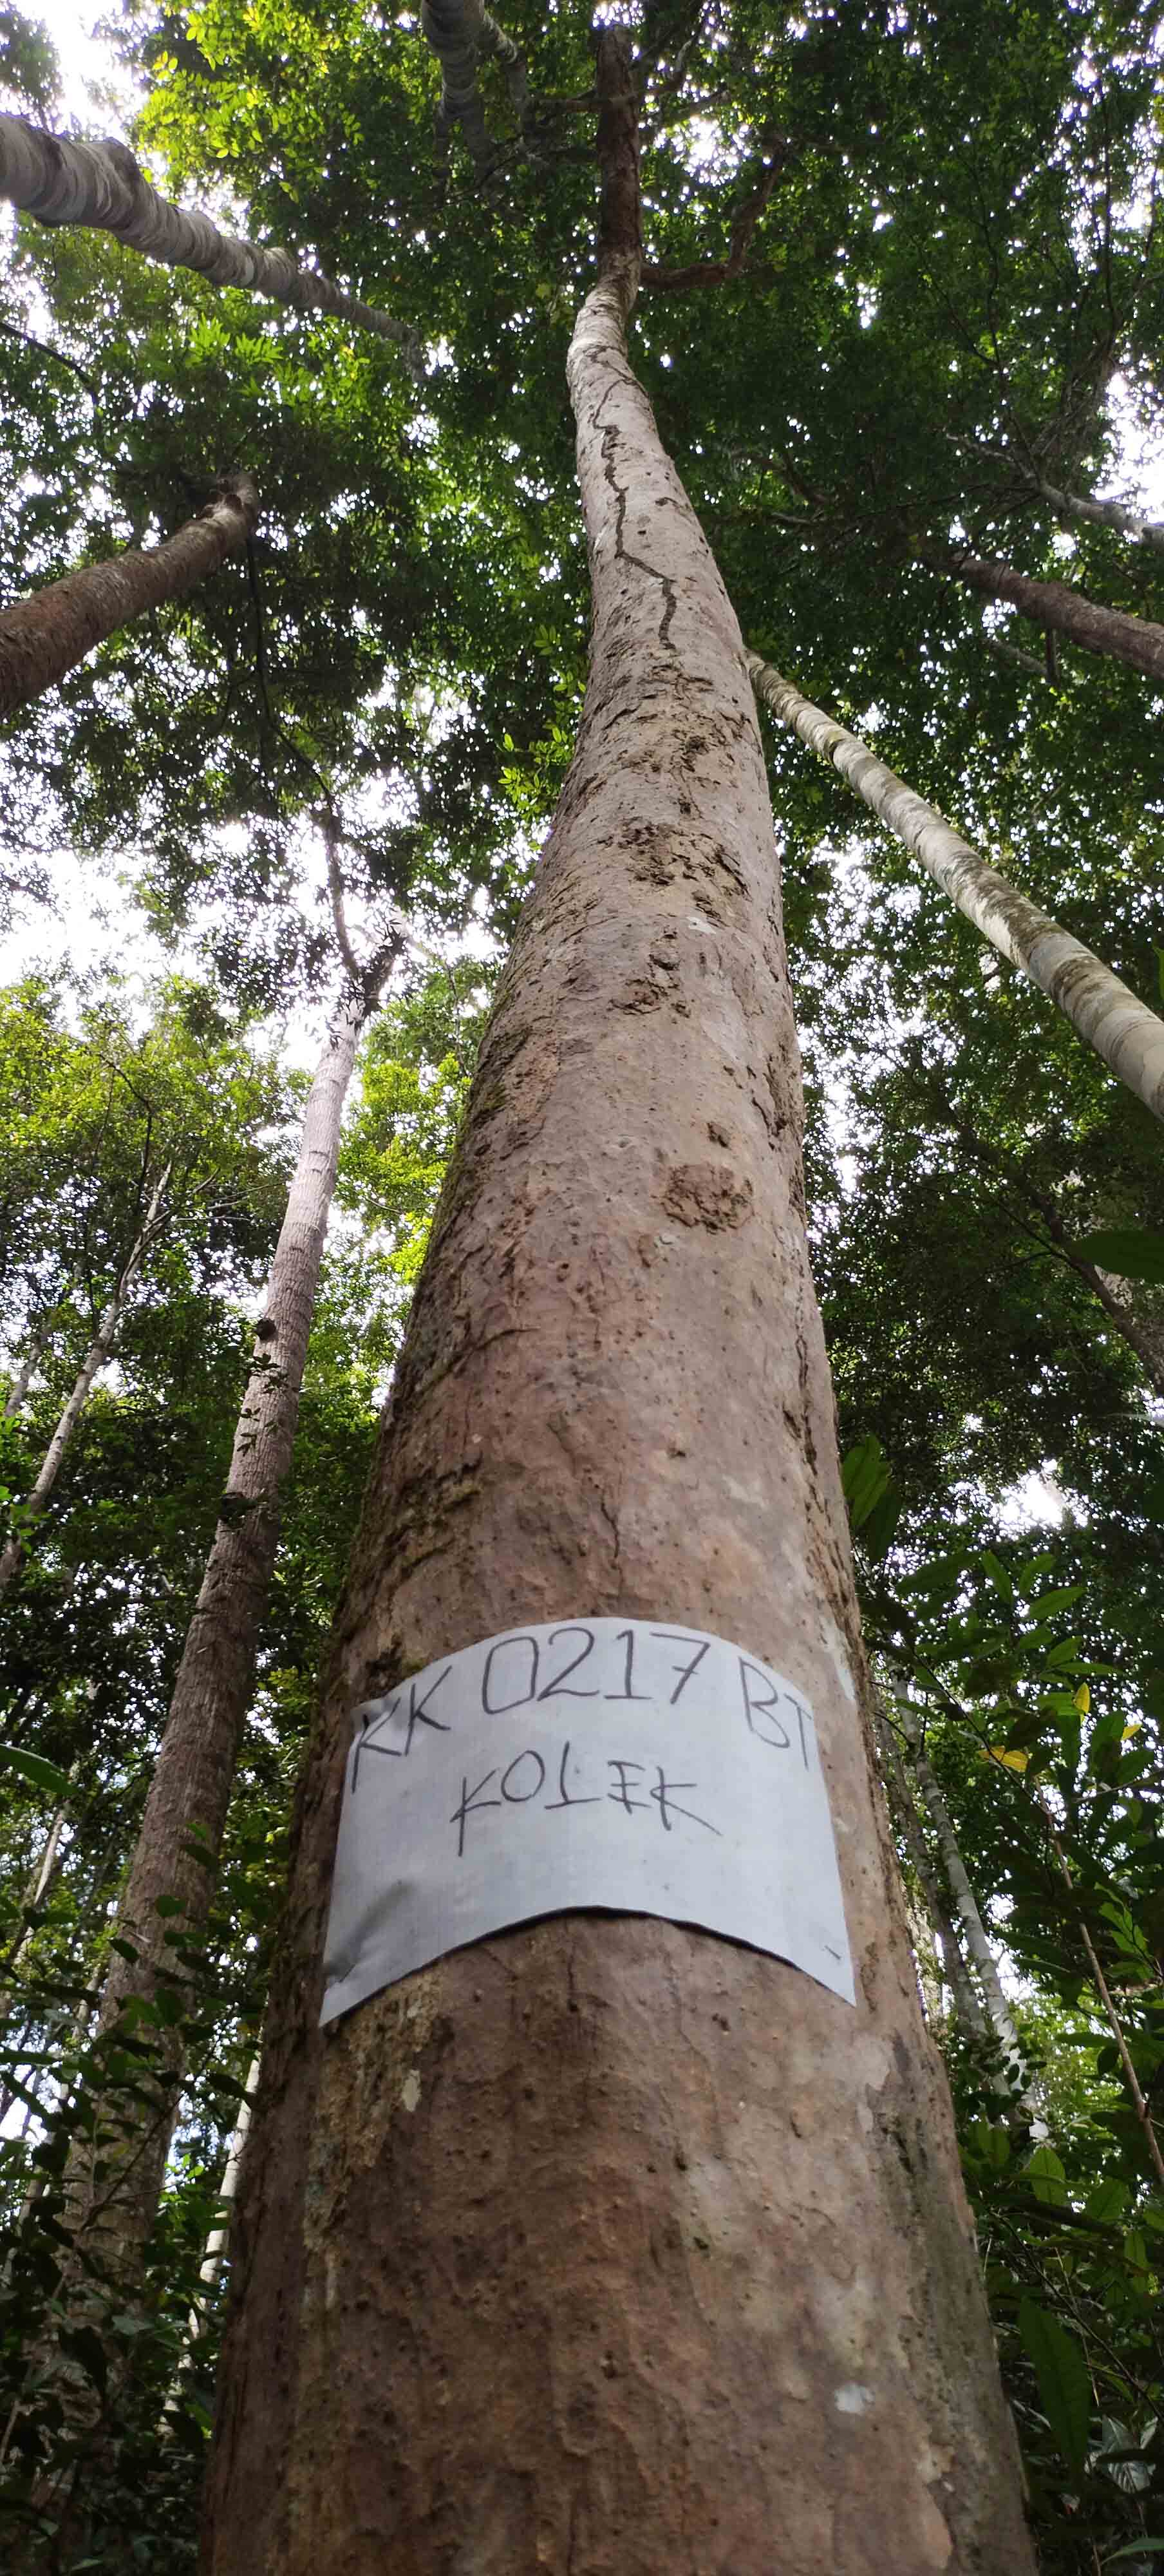 KK 0217 BT
KOLEK